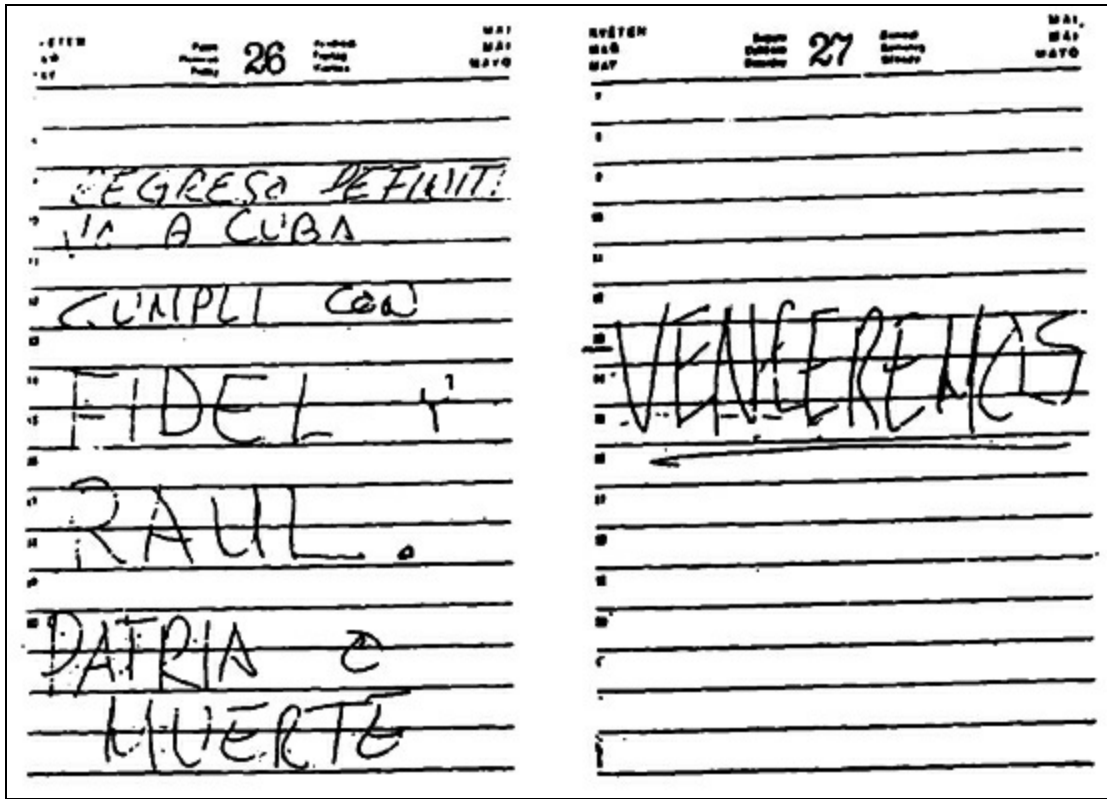 26
MAI
MAI
MAYO
REGRESO DEFINITI
VO A CUBA
CUMPLI CON
FIDEL Y
RAUL.
PATRIA O
MUERTE
KVĚTEN
MAJ
MAY
27
MAI
MÁJ
MAYO
VENCEREMOS